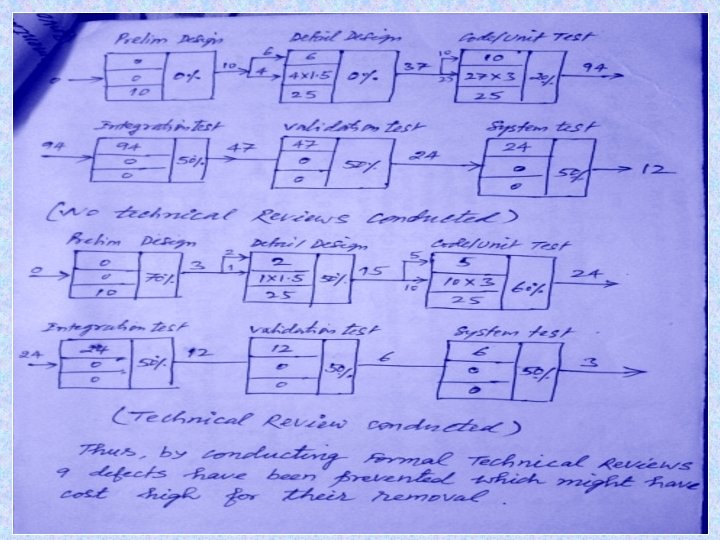 Prelim Design Detail Design Code/Unit Test
0 0 0 10 0% 10 6 4 6 4x1.5 25 0% 37 10 25 10 27x3 25 20% 94
Integration test Validation test System test
94 94 0 0 50% 47 47 0 0 50% 24 24 0 0 50% 12
(No technical Reviews conducted)
Prelim Design Detail Design Code/Unit Test
0 0 0 10 70% 3 2 1 2 1x1.5 25 50% 15 5 10 5 10x3 25 60% 24
Integration test Validation test System test
24 24 0 0 50% 12 12 0 0 50% 6 6 0 0 50% 3
(Technical Review conducted)
Thus, by conducting Formal Technical Reviews
9 defects have been prevented which might have
cost high for their removal.